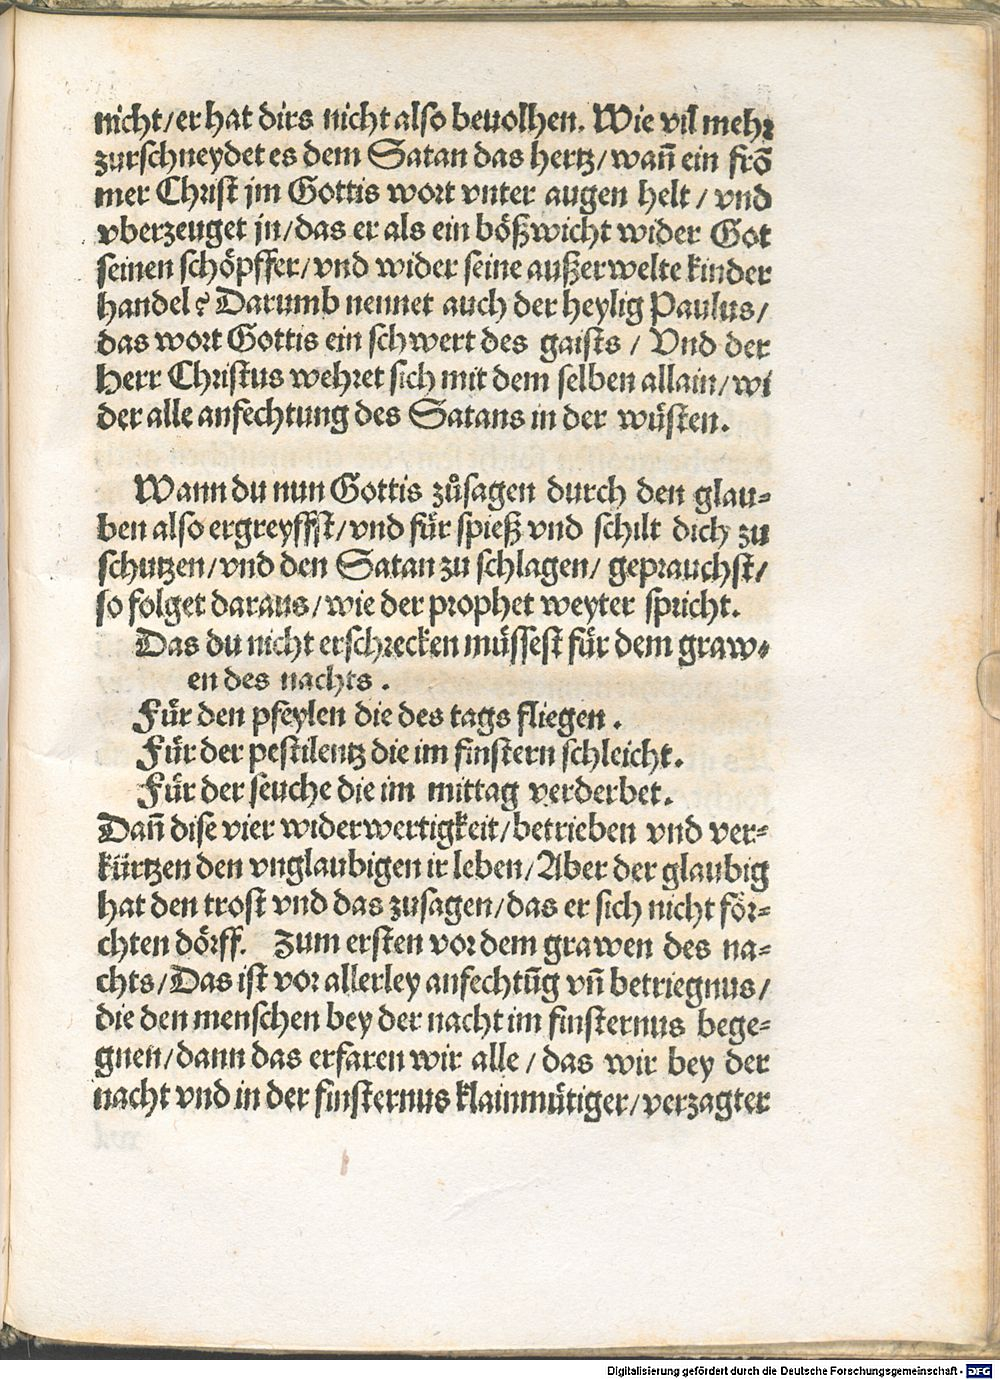 nicht/er hat dirs nicht also beuolhen. Wie vil mehr
zurschneydet es dem Satan das hertz/wañ ein frõ
mer Christ jm Gottis wort vnter augen helt/vnd
vberzeuget jn/das er als ein bößwicht wider Got
seinen schöpffer/vnd wider seine außerwelte kinder
handel? Darumb nennet auch der heylig Paulus/
das wort Gottis ein schwert des gaists/Vnd der
Herr Christus wehret sich mit dem selben allain/wi
der alle anfechtung des Satans in der wüsten.
Wann du nun Gottis zůsagen durch den glau-
ben also ergreyffst/vnd für spieß vnd schilt dich zu
schutzen/vnd den Satan zu schlagen/geprauchst/
so folget daraus/wie der prophet weyter spricht.
Das du nicht erschrecken müssest für dem graw-
en des nachts.
Für den pfeylen die des tags fliegen.
Für der pestilentz die im finstern schleicht.
Für der seuche die im mittag verderbet.
Dañ dise vier widerwertigkeit/betrieben vnd ver-
kürtzen den vnglaubigen ir leben/Aber der glaubig
hat den trost vnd das zusagen/das er sich nicht för-
chten dörff. Zum ersten vor dem grawen des na-
chts/Das ist vor allerley anfechtũg vñ betriegnus/
die den menschen bey der nacht im finsternus bege-
gnen/dann das erfaren wir alle/das wir bey der
nacht vnd in der finsternus klainmütiger/verzagter
Digitalisierung gefördert durch die Deutsche Forschungsgemeinschaft - DFG